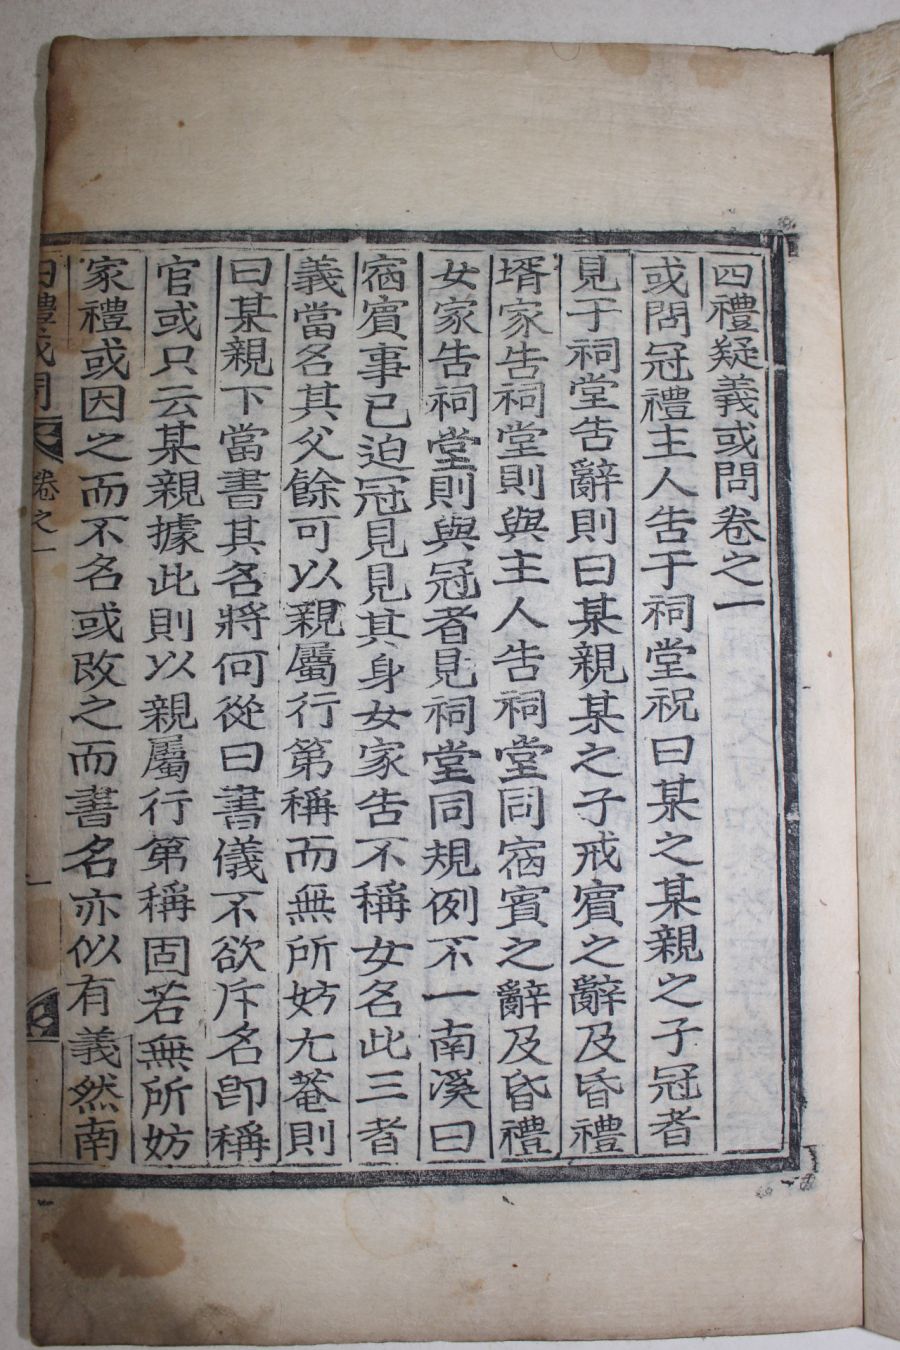 四禮疑義或問卷之一
或問冠禮主人告于祠堂祝曰某之某親之子冠者
見于祠堂告辭則曰某親某之子戒賓之辭及昏禮
壻家告祠堂則與主人告祠堂同宿賓之辭及昏禮
女家告祠堂則與冠者見祠堂同規例不一南溪曰
宿賓事已迫冠見見其身女家告不稱女名此三者
義當名其父餘可以親屬行第稱而無所妨尤菴則
曰某親下當書其名將何從曰書儀不欲斥名卽稱
官或只云某親據此則以親屬行第稱固若無所妨
家禮或因之而不名或改之而書名亦似有義然南
四禮或問 卷之一 一